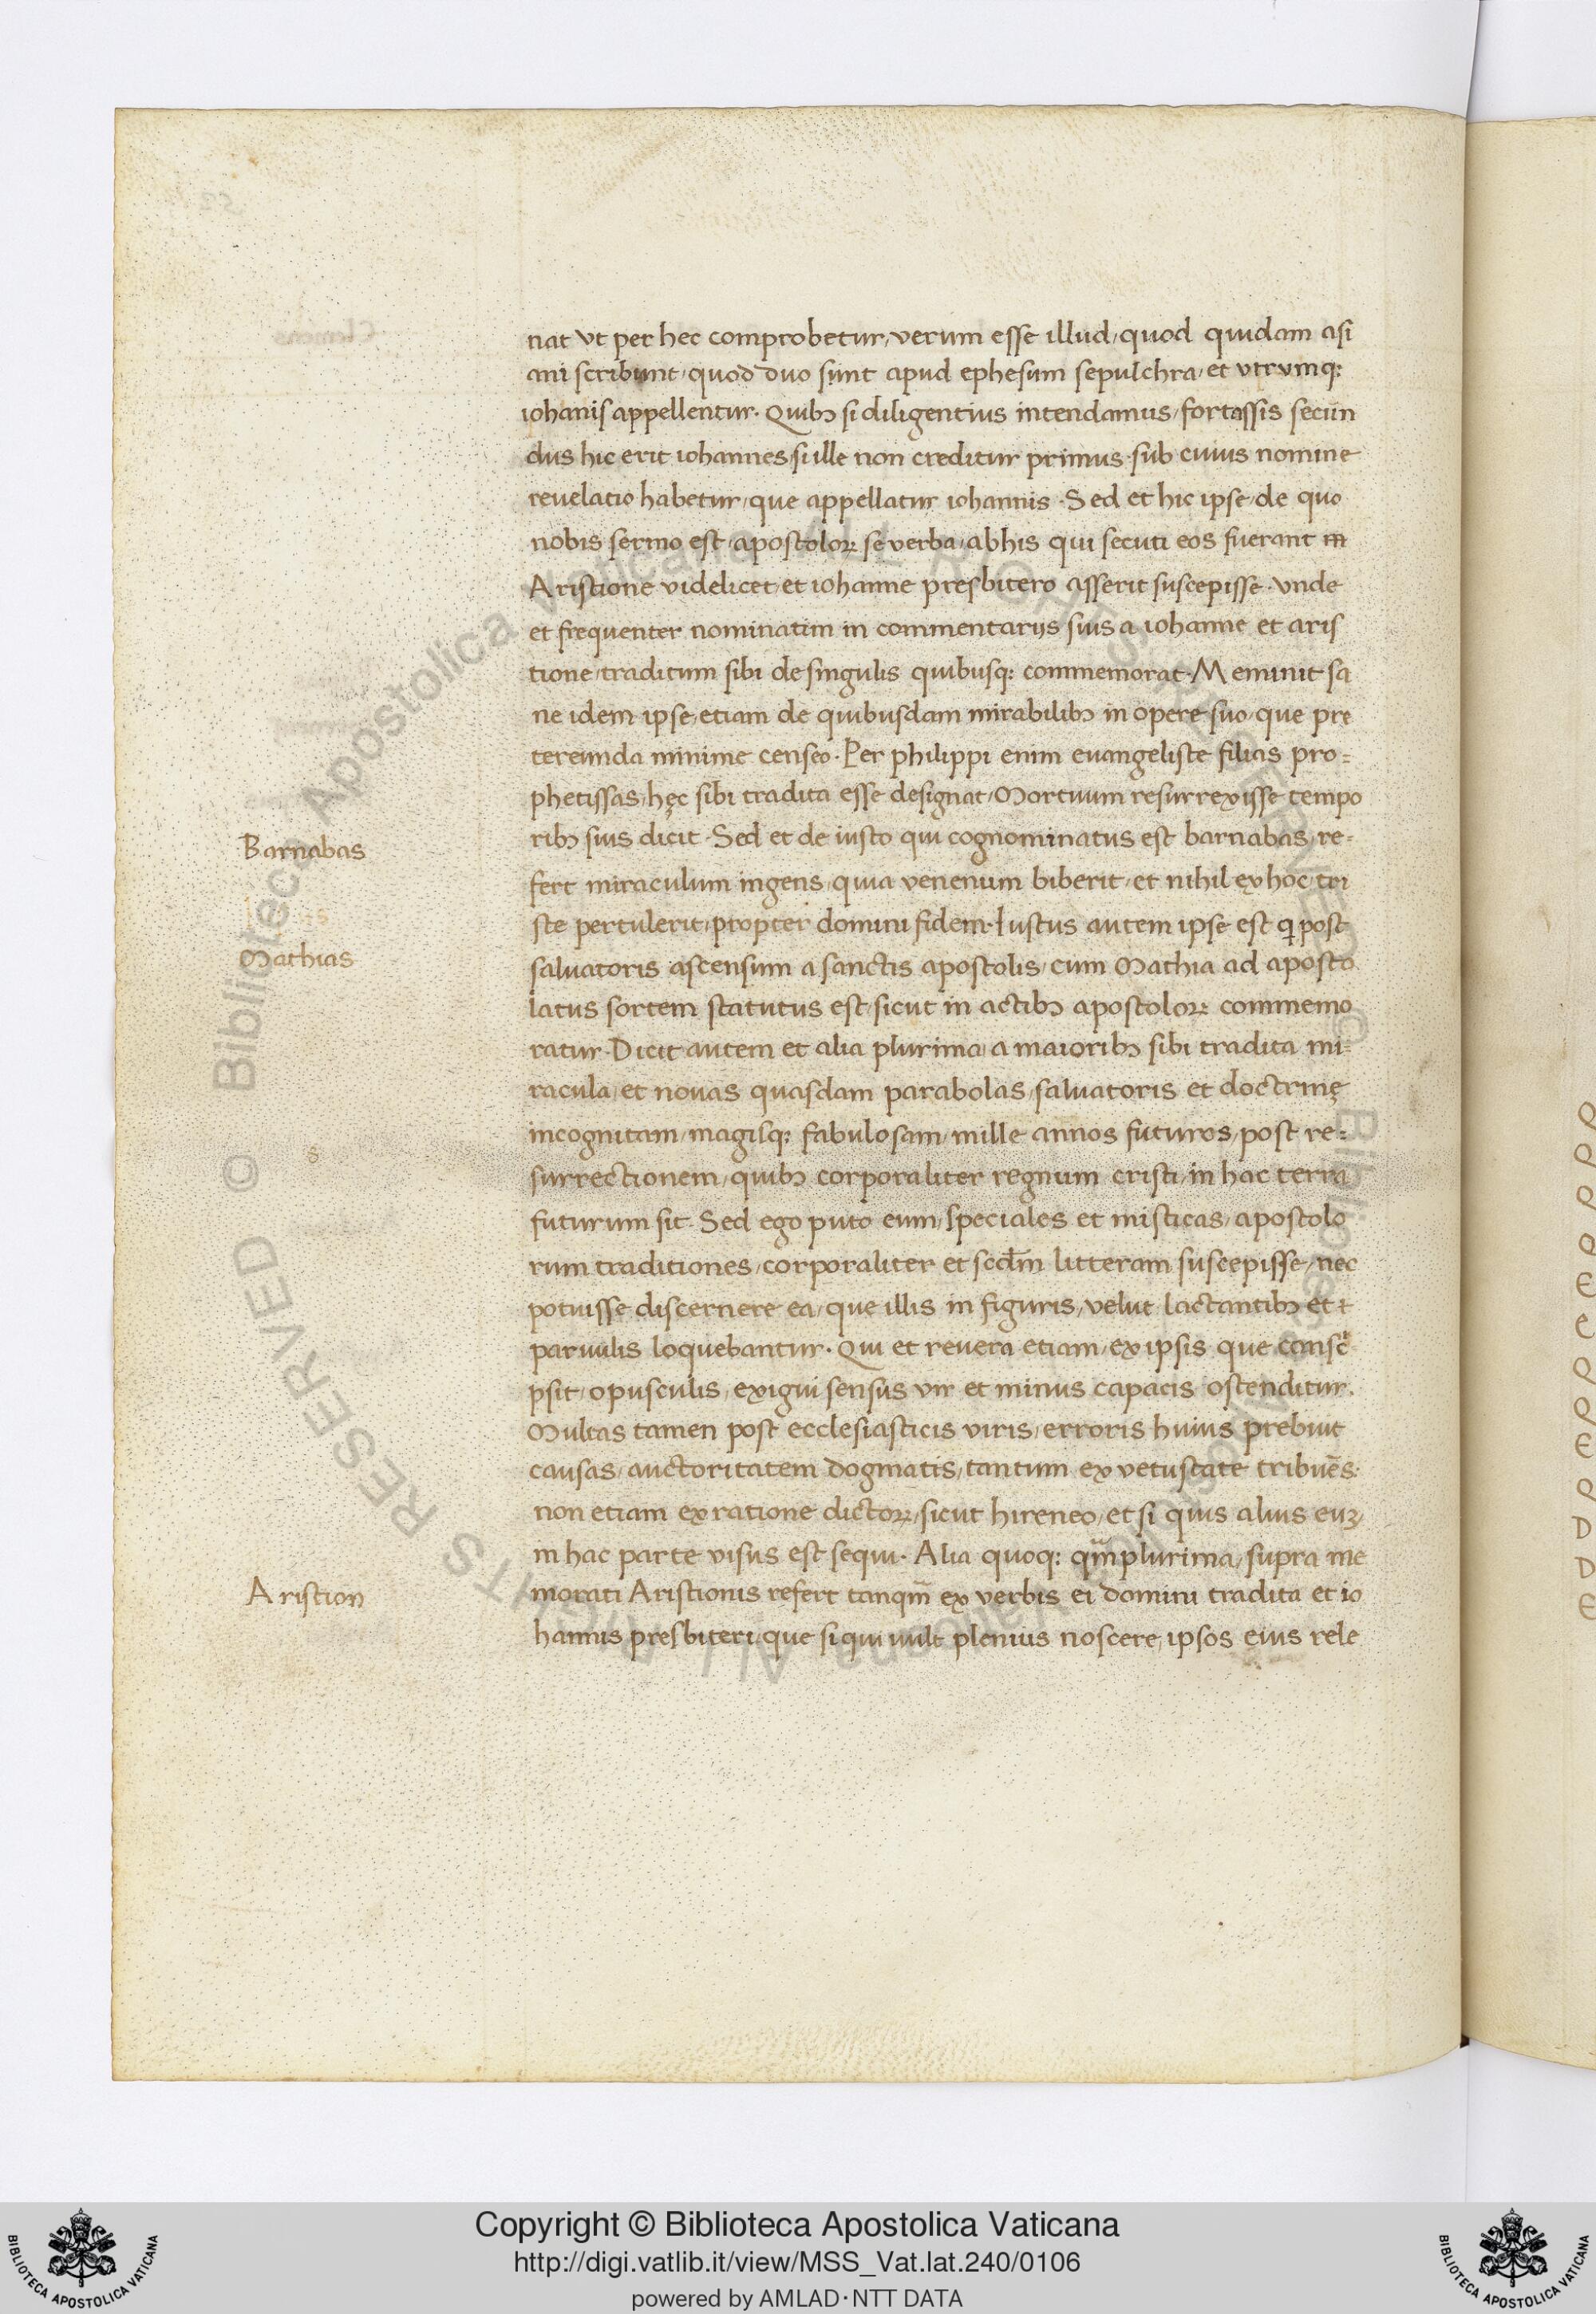 nat vt per hec comprobetur, verum esse illud, quod quidam asi
ani scribunt, quod duo sunt apud ephesum sepulchra, et vtrumq;
iohanis appellentur. Quibꝫ si diligentius intendamus, fortassis secun
dus hic erit iohannes, si ille non creditur primus sub cuius nomine
reuelatio habetur, que appellatur iohannis. Sed et hic ipse, de quo
nobis sermo est, apostoloꝝ se verba, ab his qui secuti eos fuerant
Aristione videlicet, et iohanne presbitero asserit suscepisse. Vnde
et frequenter nominatim in commentarijs suis a iohanne et aris
tione, traditum sibi de singulis quibusq; commemorat. Meminit sa
ne idem ipse, etiam de quibusdam mirabilibꝫ in opere suo, que pre
tereunda minime censeo. Per philippi enim euangeliste filias pro=
phetissas, hęc sibi tradita esse designat, Mortuum resurrexisse tempo
Barnabas
ribꝫ suis dicit. Sed et de iusto qui cognominatus est barnabas, re-
fert miraculum ingens, quia venenum biberit, et nihil ex hoc tri
ste pertulerit, propter domini fidem. Iustus autem ipse est q̇ post
Mathias
saluatoris ascensum a sanctis apostolis, cum Mathia ad aposto
latus sortem statutus est, sicut in actibꝫ apostoloꝝ commemo
ratur. Dicit autem et alia plurima, a maioribꝫ sibi tradita mi=
racula, et nouas quasdam parabolas, saluatoris et doctrinę
incognitam, magisq; fabulosam, mille annos futuros, post re=
surrectionem, quibꝫ corporaliter regnum cristi, in hac terra
futurum sit. Sed ego puto eum, speciales et misticas, apostolo
rum traditiones, corporaliter et scdm̄ litteram suscepisse, nec
potuisse discernere ea, que illis in figuris, velut lactantibꝫ et
paruulis loquebantur. Qui et reuera etiam, ex ipsis que consc̍
psit, opusculis, exigui sensus vir et minus capacis ostenditur.
Multas tamen post ecclesiasticis viris, erroris huius prebuit
causas, auctoritatem dogmatis, tantum ex vetustate tribuēs.
non etiam ex ratione dictoꝝ, sicut hireneo, et si quis alius euꝫ,
in hac parte visus est sequi. Alia quoq; qm̄ plurima, supra me
Aristion
morati Aristionis refert tanqm̄ ex verbis ei domini tradita et io
hannis presbiteri, que si qui uult plenius noscere, ipsos eius rele
Copyright © Biblioteca Apostolica Vaticana
http://digi.vatlib.it/view/MSS_Vat.lat.240/0106
powered by AMLAD·NTT DATA